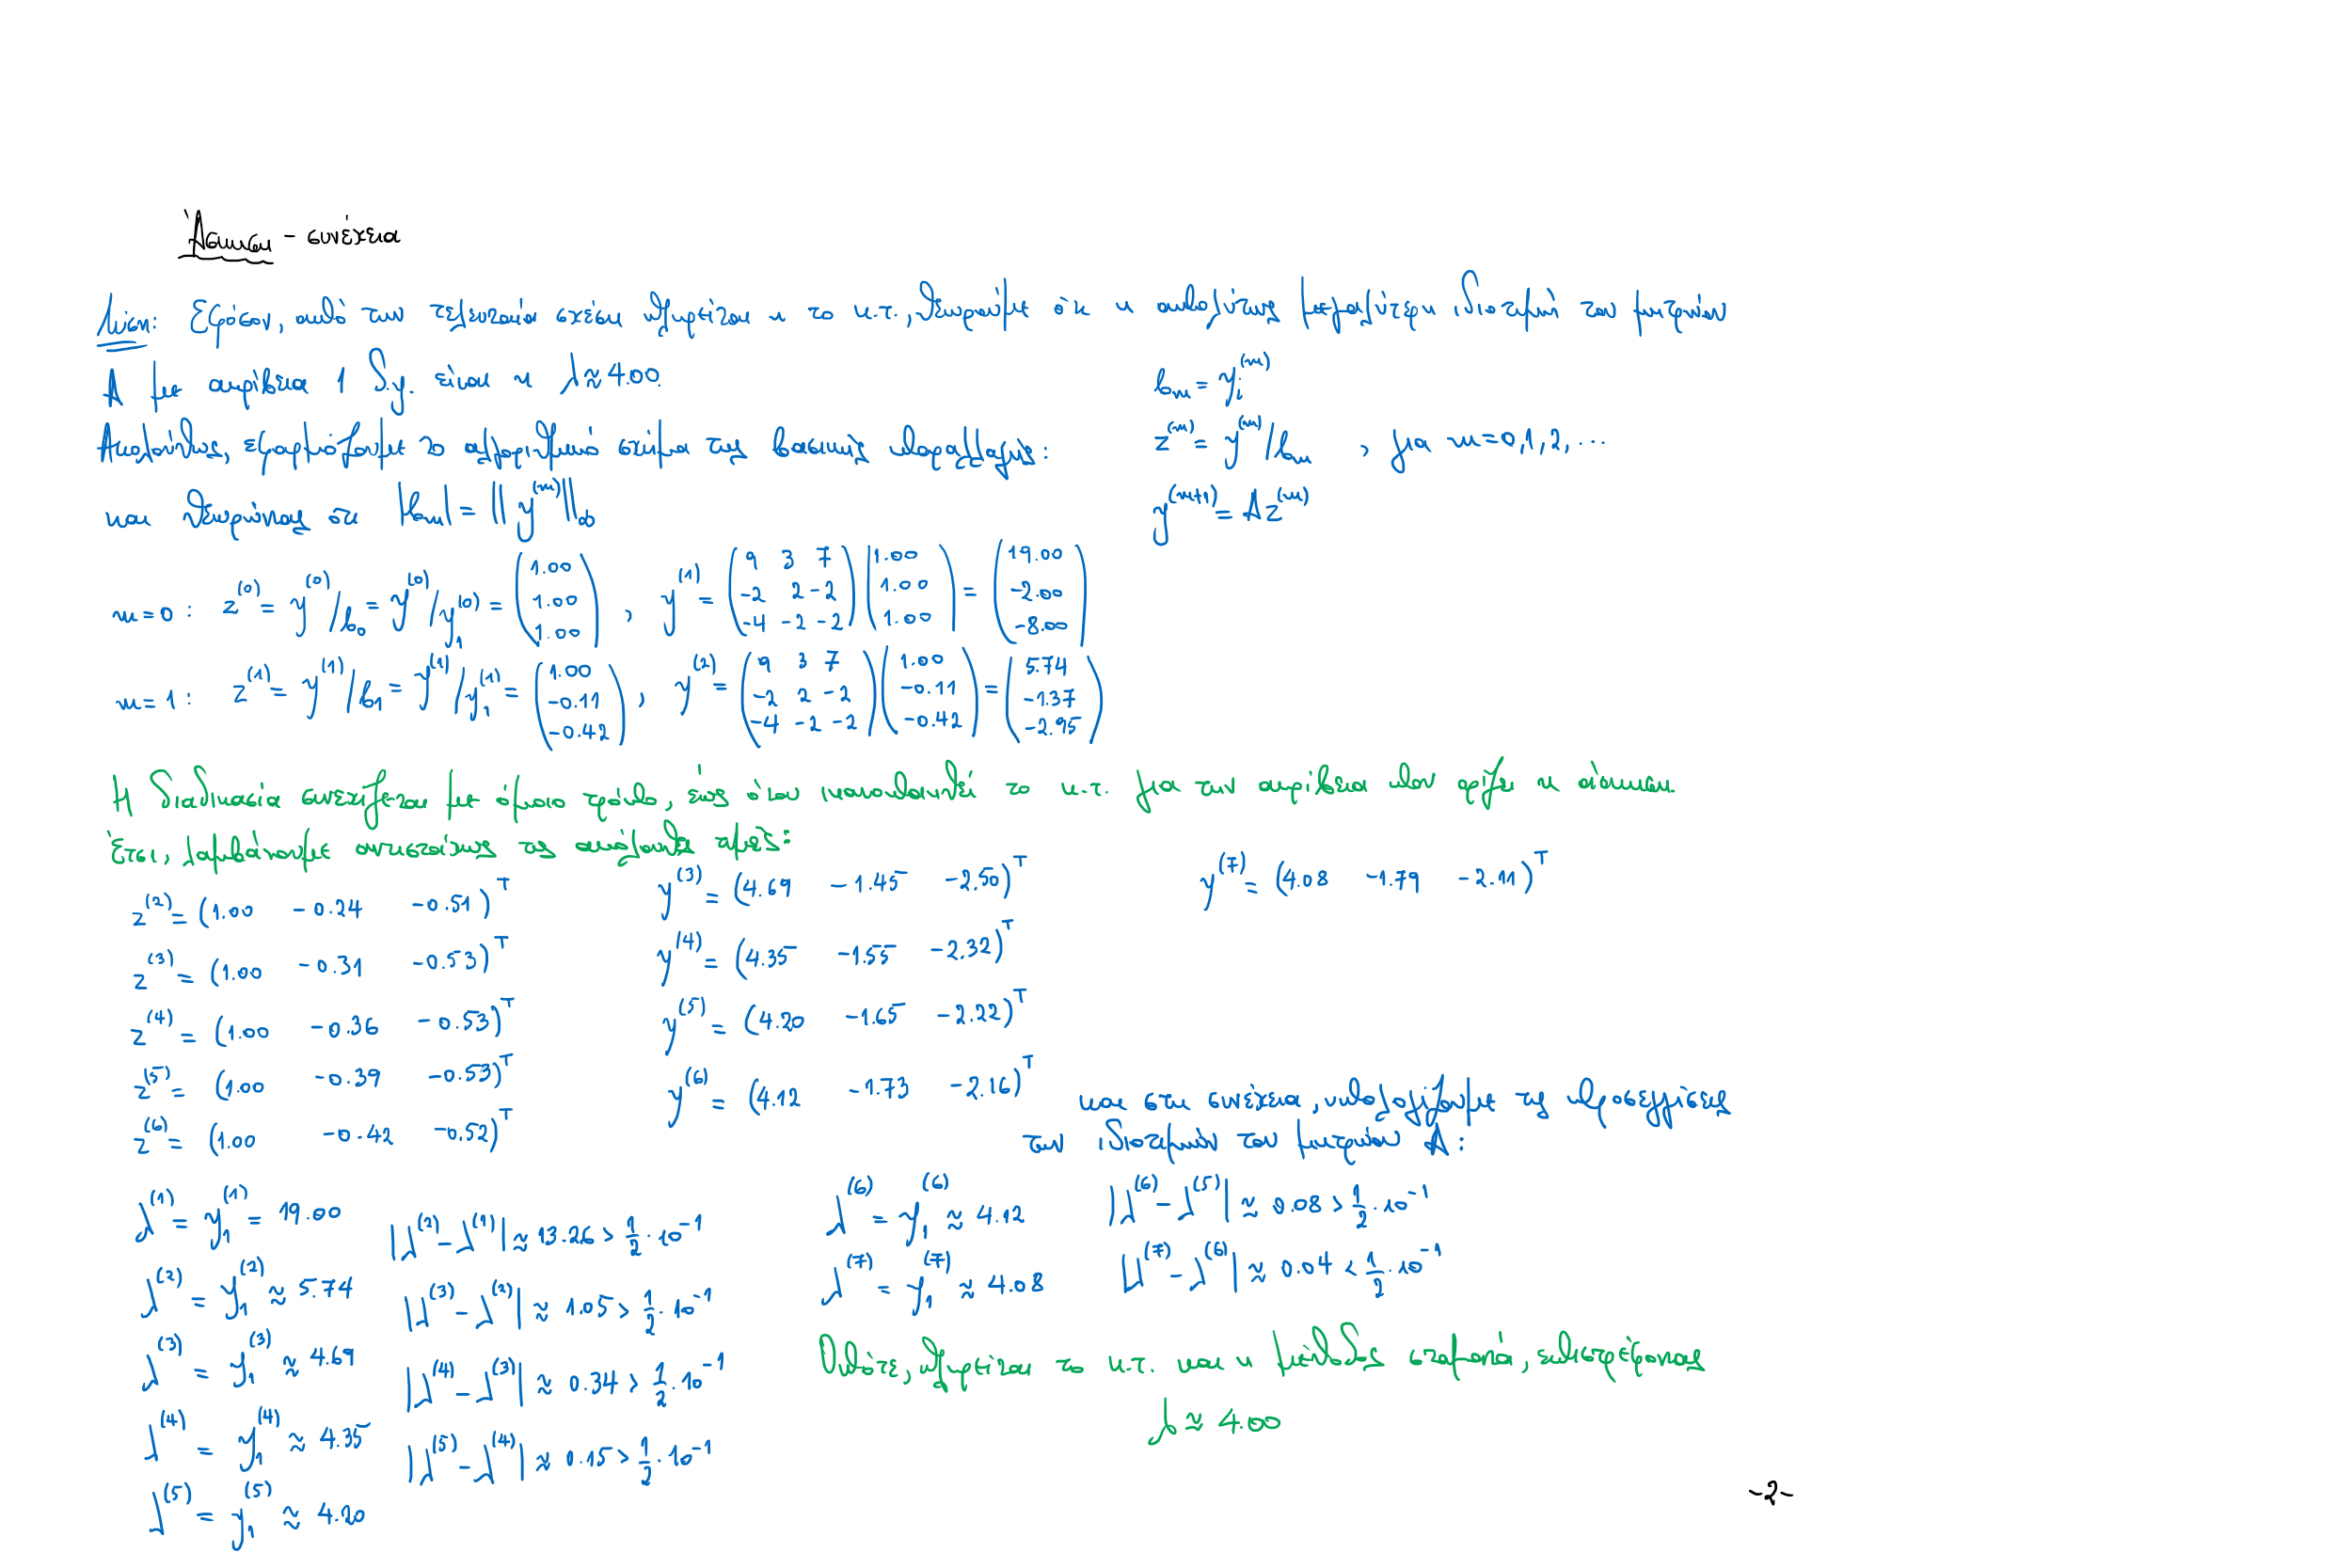 Άσκηση - συνέχεια
Λύση: Εφόσον, από την τελευταία σχέση πληρείται η το κ.τ., θεωρούμε ότι η απολύτως μεγαλύτερη ιδιοτιμή του μητρώου
A με ακρίβεια 1 δ.ψ. είναι η λ≈4.00.
Ακολούθως, εφαρμόζουμε το αλγοριθμικό σχήμα της βασικής παραλλαγής:
b_m = y_i^(m)
z^(m) = y^(m)/b_m , για m=0,1,2,...
y^(m+1) = Az^(m)
και θεωρώντας ότι |b_m| = ||y^(m)||_∞
m=0: z^(0) = y^(0)/b_0 = y^(0)/y_1^(0) = (1.00 1.00 1.00) , y^(1) = (9 3 7 -2 2 -2 -4 -2 -2) (1.00 1.00 1.00) = (19.00 -2.00 -8.00)
m=1: z^(1) = y^(1)/b_1 = y^(1)/y_1^(1) = (1.00 -0.11 -0.42) , y^(2) = (9 3 7 -2 2 -2 -4 -2 -2) (1.00 -0.11 -0.42) = (5.74 -1.37 -2.95)
Η διαδικασία συνεχίζεται με όμοιο τρόπο, έως ότου ικανοποιηθεί το κ.τ. για την ακρίβεια που ορίζει η άσκηση.
Έτσι, λαμβάνουμε αντιστοίχως τις ακόλουθες τιμές:
z^(2) = (1.00 -0.24 -0.51)^T
z^(3) = (1.00 -0.31 -0.53)^T
z^(4) = (1.00 -0.36 -0.53)^T
z^(5) = (1.00 -0.39 -0.53)^T
z^(6) = (1.00 -0.42 -0.52)^T
y^(3) = (4.69 -1.45 -2.50)^T
y^(4) = (4.35 -1.55 -2.32)^T
y^(5) = (4.20 -1.65 -2.22)^T
y^(6) = (4.12 -1.73 -2.16)^T
y^(7) = (4.08 -1.79 -2.11)^T
και στη συνέχεια, υπολογίζουμε τις προσεγγίσεις
των ιδιοτιμών του μητρώου A:
λ^(1) = y_1^(1) = 19.00
λ^(2) = y_1^(2) ≈ 5.74
λ^(3) = y_1^(3) ≈ 4.69
λ^(4) = y_1^(4) ≈ 4.35
λ^(5) = y_1^(5) ≈ 4.20
|λ^(2) - λ^(1)| ≈ 13.26 > 1/2 · 10^-1
|λ^(3) - λ^(2)| ≈ 1.05 > 1/2 · 10^-1
|λ^(4) - λ^(3)| ≈ 0.34 > 1/2 · 10^-1
|λ^(5) - λ^(4)| ≈ 0.15 > 1/2 · 10^-1
λ^(6) = y_1^(6) ≈ 4.12
λ^(7) = y_1^(7) ≈ 4.08
|λ^(6) - λ^(5)| ≈ 0.08 > 1/2 · 10^-1
|λ^(7) - λ^(6)| ≈ 0.04 < 1/2 · 10^-1
Οπότε, πληρείται το κ.τ. και η μέθοδος σταματά, επιστρέφοντας
λ ≈ 4.00
-2-